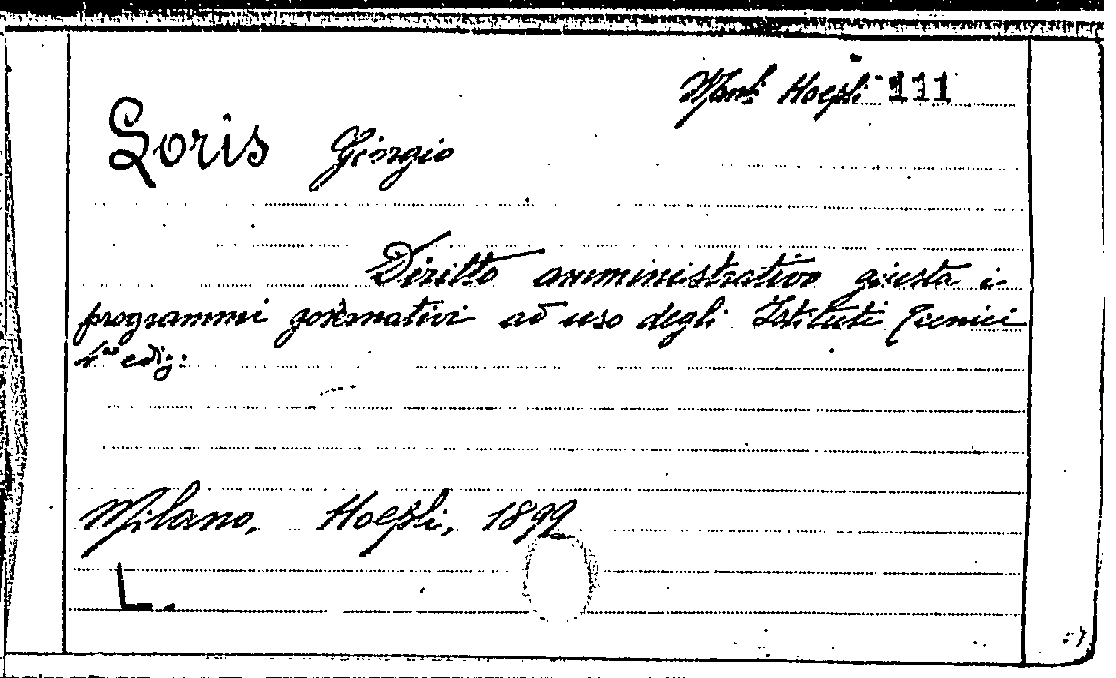 Man. Hoepli 111
Loris Giorgio
Diritto amministrativo giusta i
programmi governativi ad uso degli Istituti Tecnici
4ª ediz:
Milano, Hoepli, 1899
L.